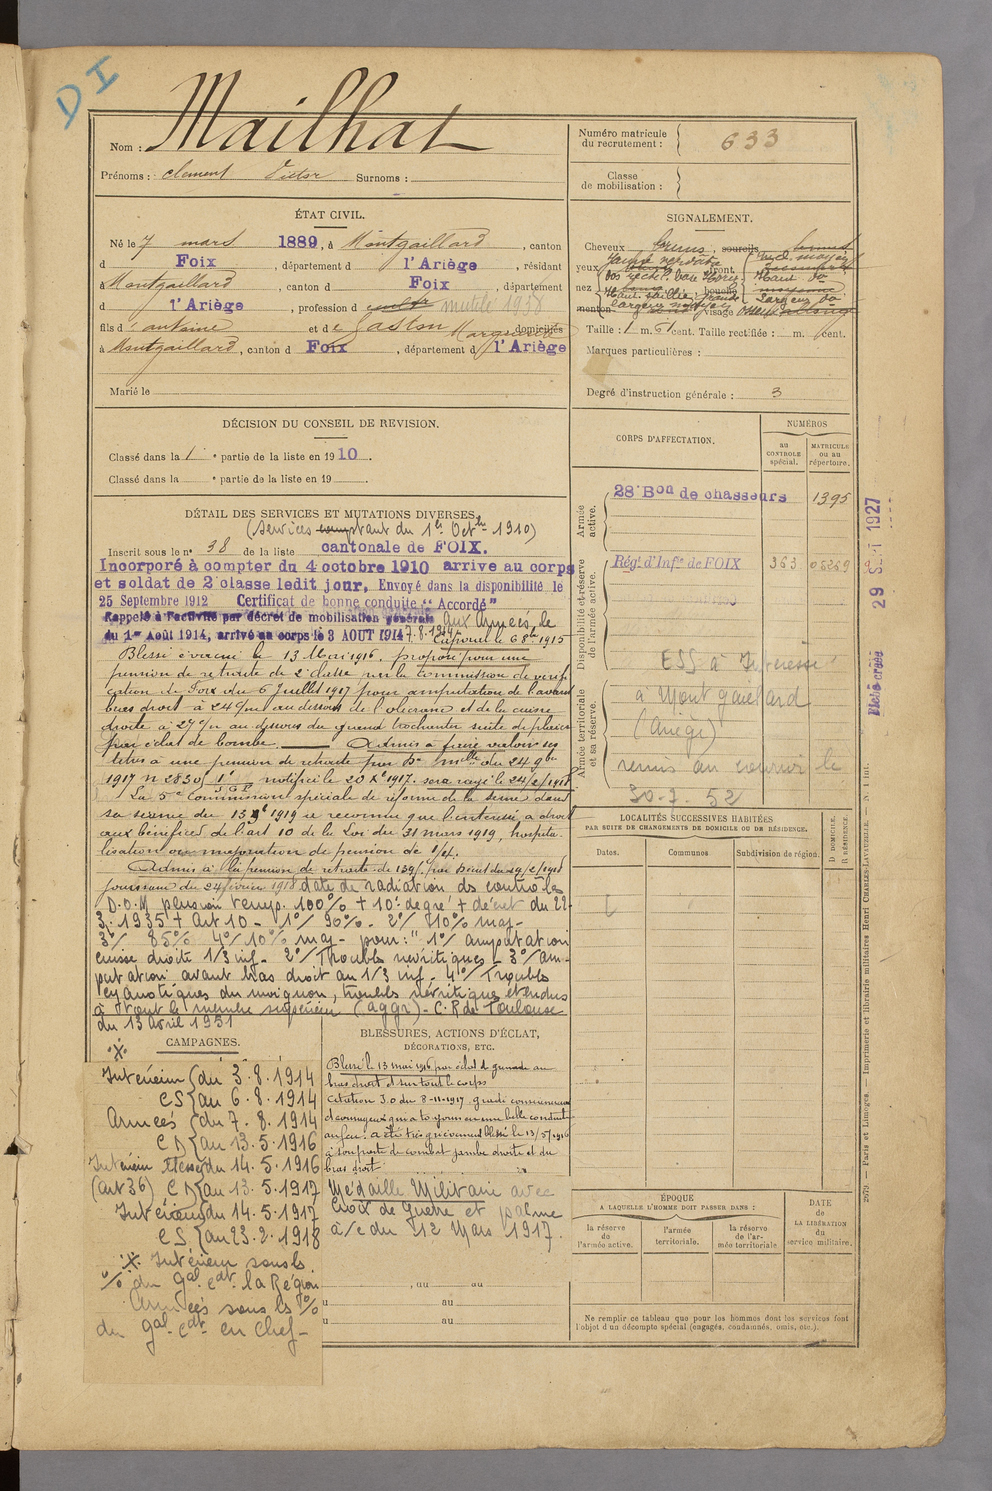 D I
Nom : Mailhat
Prénoms : Clement Victor Surnoms :
Numéro matricule
du recrutement : 633
Classe
de mobilisation :
ÉTAT CIVIL.
Né le 7 mars 1889, à Montgaillard, canton
d Foix, département d l'Ariège, résidant
à Montgaillard, canton d Foix, département
d l'Ariège, profession de cultr mutilé 1938
fils d'antoine et de Gaston Marguerite domiciliés
à Montgaillard, canton d Foix, département d l'Ariège
Marié le
SIGNALEMENT.
Cheveux bruns, sourcils
yeux front
nez bouche
menton visage
Taille : 1 m. 61 cent. Taille rectifiée : m. cent.
Marques particulières :
Degré d'instruction générale : 3
DÉCISION DU CONSEIL DE REVISION.
Classé dans la 1e partie de la liste en 1910.
Classé dans la e partie de la liste en 19 .
DÉTAIL DES SERVICES ET MUTATIONS DIVERSES.
(Services comptant du 1er Octbre 1910)
Inscrit sous le n° 38 de la liste cantonale de FOIX.
Incorporé à compter du 4 octobre 1910 arrivé au corps
et soldat de 2e classe ledit jour, Envoyé dans la disponibilité le
25 Septembre 1912 Certificat de bonne conduite "Accordé"
Rappelé à l'activité par décret de mobilisation générale aux Armées le
du 1er Août 1914, arrivé au corps le 3 AOUT 1914 7.8.1914 Caporal le 6 8bre 1915
Blessé évacué le 13 Mai 1916, proposé pour une
pension de retraite de 2e classe par la Commission de vérifi
cation de Foix du 6 Juillet 1917 pour amputation de l'avant
bras droit à 24 c/m au dessous de l'olécrane et de la cuisse
droite à 27 c/m au dessous du grand trochanter suite de plaies
par éclat de bombe. Admis à faire valoir ses
titres à une pension de retraite par Don mlle du 24 9bre
1917 n° 2830 notifiée le 20 Xbre 1917. sera rayé le 24/2/1918
La 5e Commission spéciale de réforme de la Seine dans
sa séance du 13 1919 a reconnu que l'intéressé a droit
aux bénéfices de l'art 10 de la Loi du 31 mars 1919, hospita-
lisation ou majoration de pension de 1/4.
Admis à la pension de retraite de 139f par Décret du 29/2/1918
jouissance du 24 février 1918 date de radiation ds contrôles
D.O.M pension temp. 100% + 10e degré + décret du 22-
3. 1935 + Art 10 - 1°/ 90% - 2°/ 10% maj-
3°/ 85% 4°/ 10% maj - pour : "1°/ amputation
cuisse droite 1/3 inf - 2°/ Troubles névritiques - 3°/ am-
putation avant bras droit au 1/3 inf - 4°/ Troubles
cyanotiques du moignon, troubles névritiques étendus
à tout le membre supérieur (aggr) - C.R de Toulouse
du 13 avril 1951
CORPS D'AFFECTATION.
NUMÉROS
AU CONTROLE spécial.
MATRICULE OU AU répertoire.
Armée active.
28e Bon de chasseurs 1395
Disponibilité et réserve de l'armée active.
Régt d'Infie de FOIX 363
Armée territoriale et sa réserve.
ESS à Intéressé
à Montgaillard
(Ariège)
remis au courrier le
30-7-52
29 1927
Fiche créée
LOCALITÉS SUCCESSIVES HABITÉES
PAR SUITE DE CHANGEMENTS DE DOMICILE OU DE RÉSIDENCE.
Dates. Communes Subdivision de région. D. DOMICILE. R. RÉSIDENCE.
CAMPAGNES.
Intérieur du 3.8.1914
CS au 6.8.1914
Armées du 7.8.1914
CD au 13.5.1916
Intérieur blessé du 14.5.1916
(art 36) CD au 13.5.1917
Intérieur du 14.5.1917
CS au 23.2.1918
※ Intérieur sous ls
% du Gal cdt la Région
Armées sous ls %
du gal cdt en chef-
BLESSURES, ACTIONS D'ÉCLAT,
DÉCORATIONS, ETC.
Blessé le 13 mai 1916 par éclat de grenade au
bras droit et sur tout le corps
Citation 30 du 8-11-1917
au feu : a été très grièvement blessé le 13/5/1916
à son poste de combat jambe droite et du
bras droit
Médaille Militaire avec
Croix de Guerre et palme
à/c du 12 Mars 1917.
, au au
au
au
ÉPOQUE
A LAQUELLE L'HOMME DOIT PASSER DANS :
la réserve de l'armée active.
l'armée territoriale.
la réserve de l'armée territoriale
DATE de LA LIBÉRATION du service militaire.
Ne remplir ce tableau que pour les hommes dont les services font
l'objet d'un décompte spécial (engagés, condamnés, omis, etc.).
Paris et Limoges. — Imprimerie et librairie militaires Henri CHARLES-LAVAUZELLE.